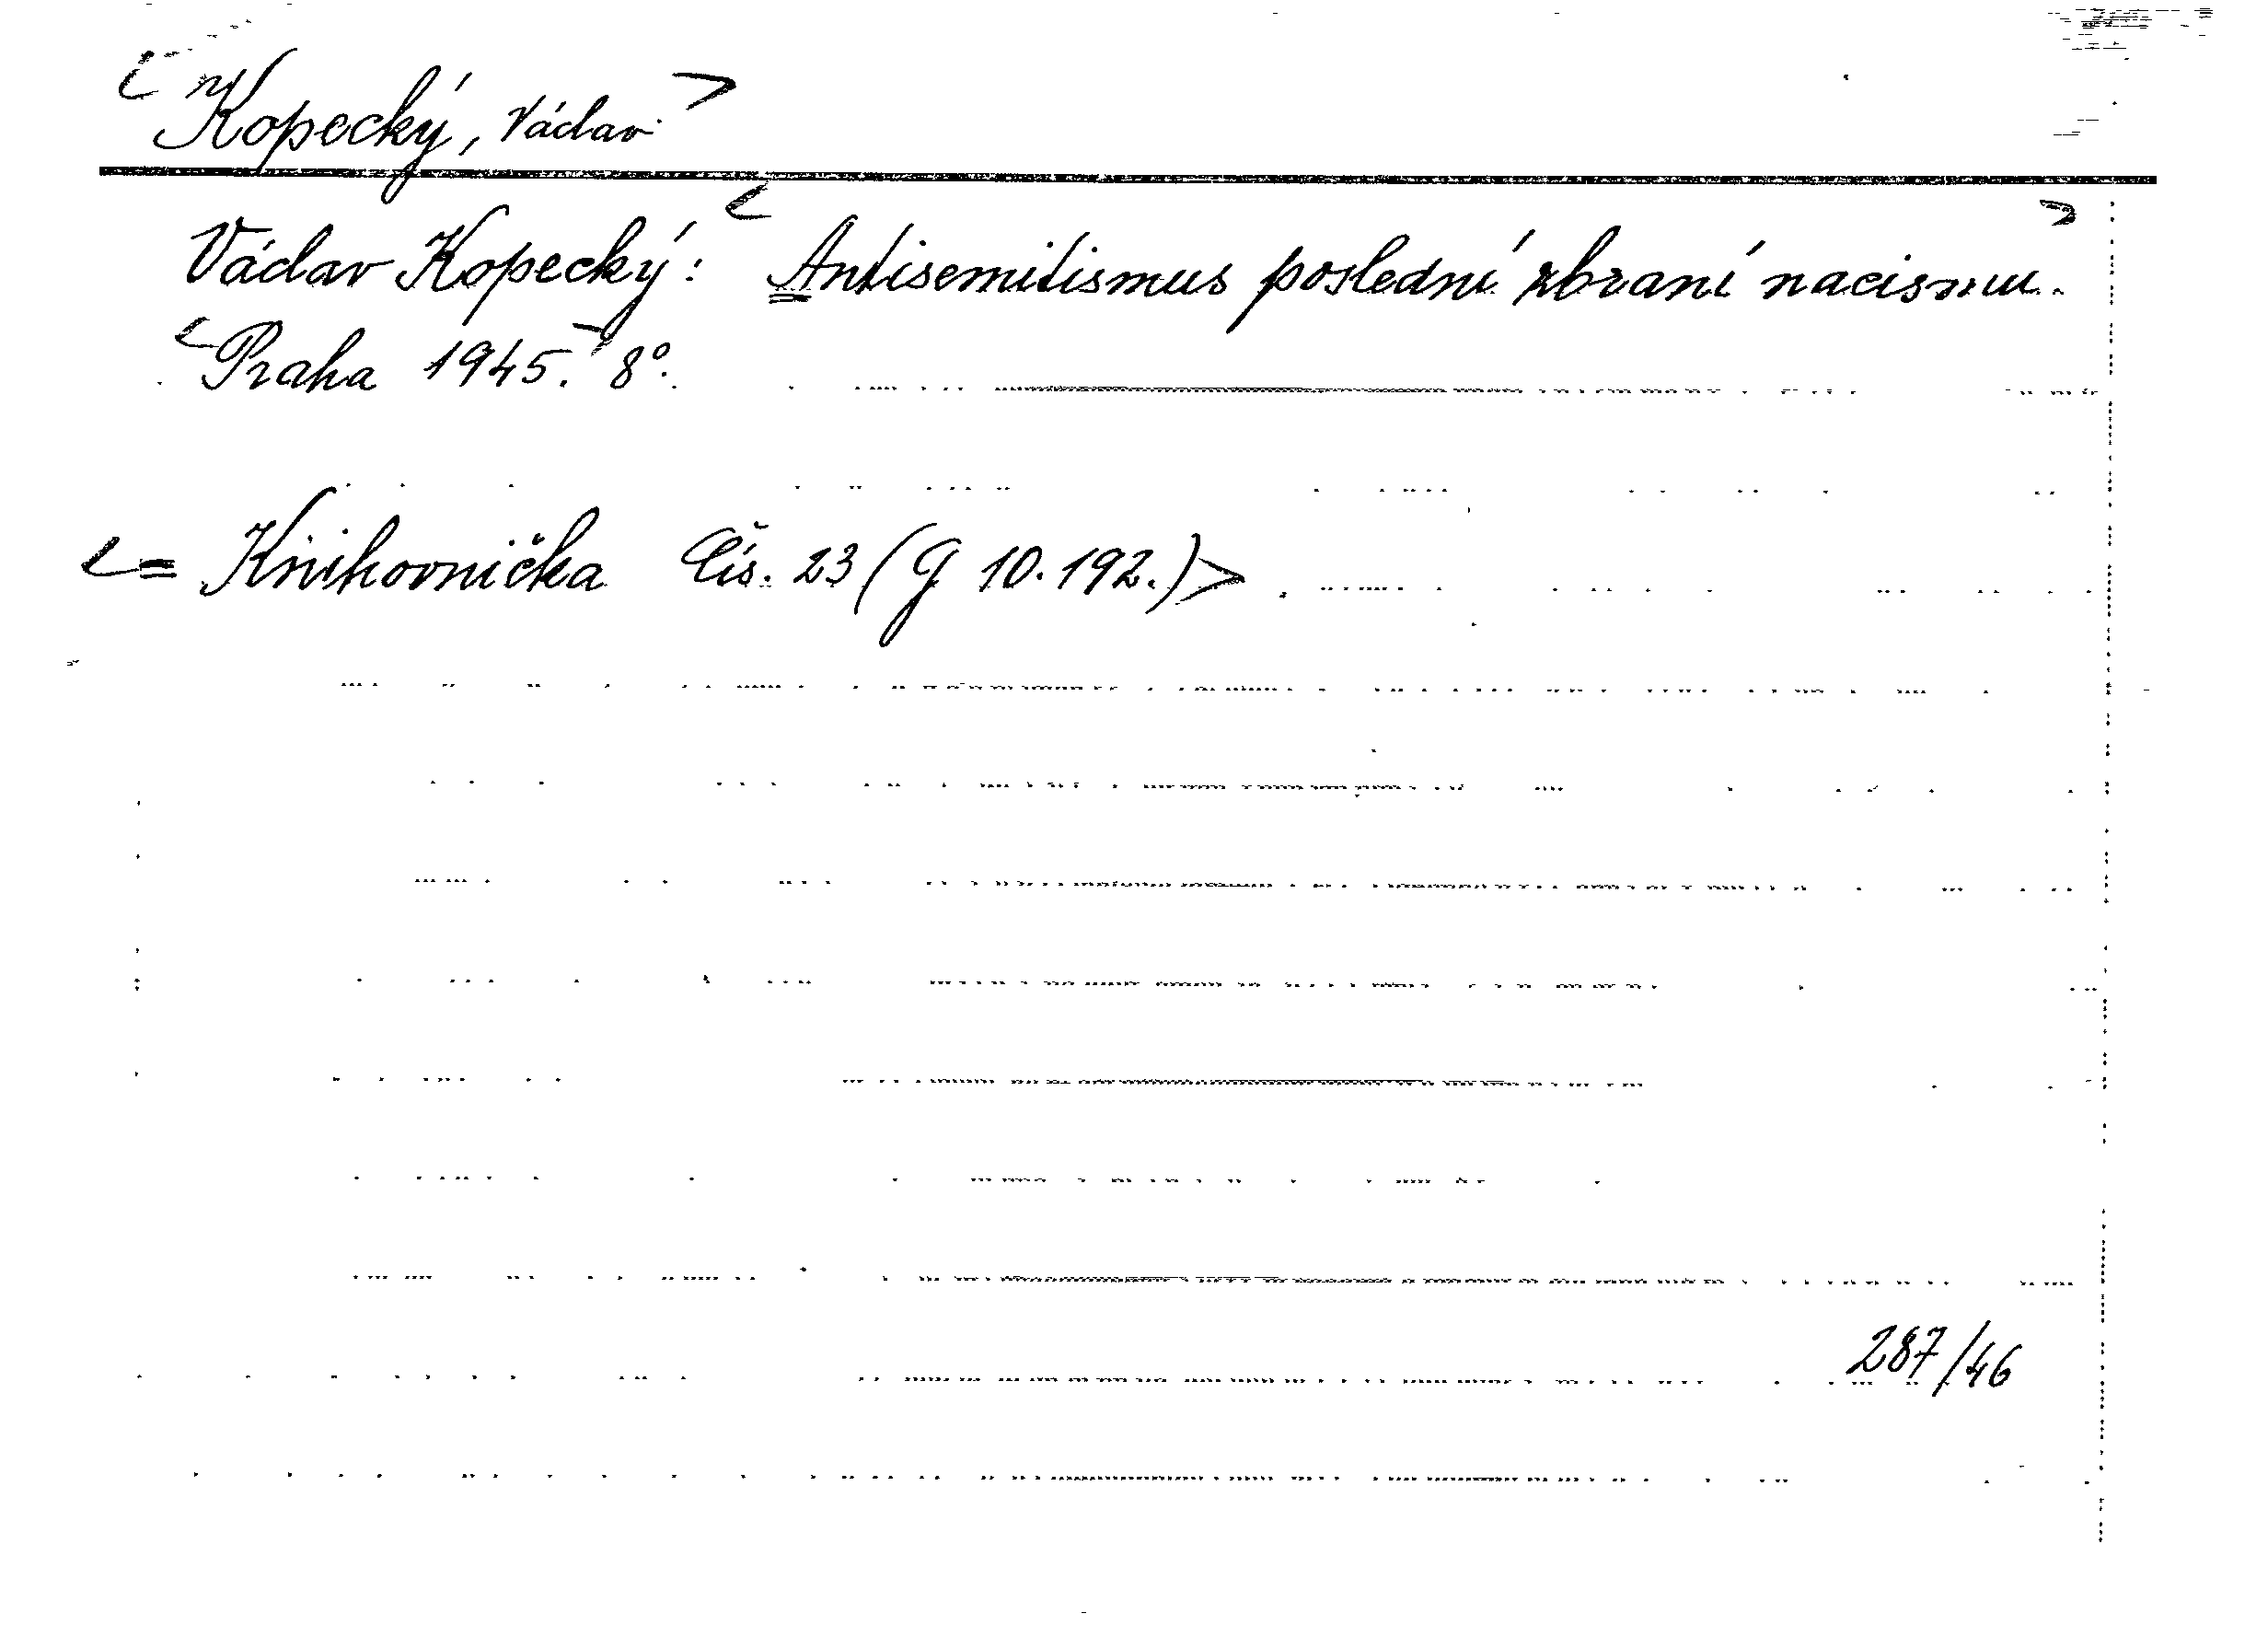 Kopecký, Václav
Václav Kopecký: Antisemitismus poslední zbraní nacismu.
Praha 1945. 8°.
= Knihovnička Čís. 23 (G 10.192.)
287/46